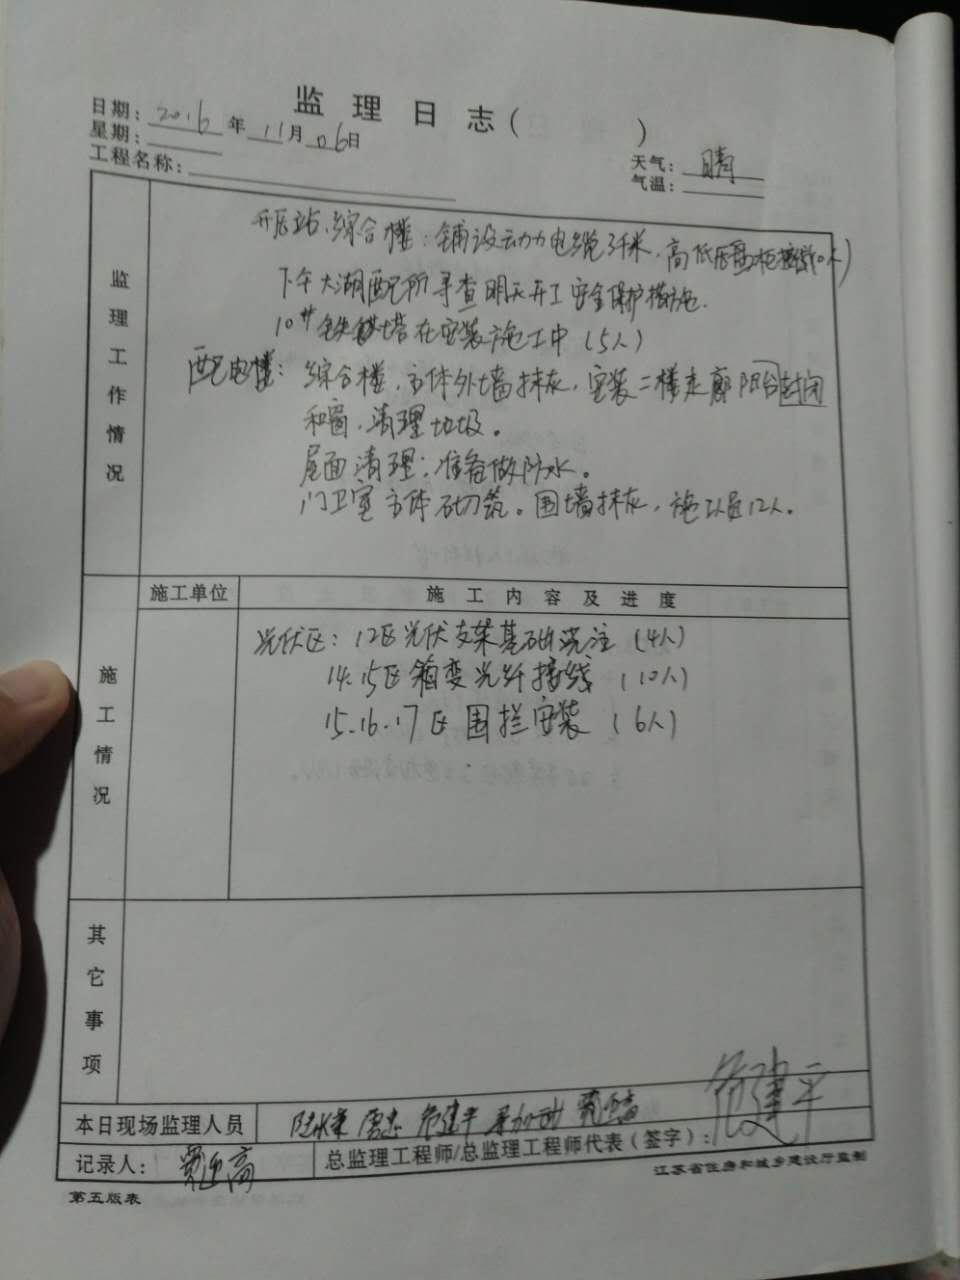 监理日志（　　　）
日期：2016年11月06日
星期：
天气：晴
工程名称：
气温：
监理工作情况
开压站、综合楼：铺设动力电缆3千米，高低压盘柜
下午大湖配电所寻查明天开工安全保护措施.
10# 铁塔在安装施工中（5人）
配电楼：综合楼，主体外墙抹灰，安装二楼走廊阳台封闭
和窗，清理垃圾。
屋面清理；准备做防水。
门卫室主体砌筑。围墙抹灰，施工员12人.
施工单位
施工内容及进度
施工情况
光伏区：12区光伏支架基础浇注（4人）
14.15区箱变光纤接线（10人）
15.16.17区围拦安装（6人）
其它事项
本日现场监理人员
记录人：
总监理工程师/总监理工程师代表（签字）：
第五版表
江苏省住房和城乡建设厅监制